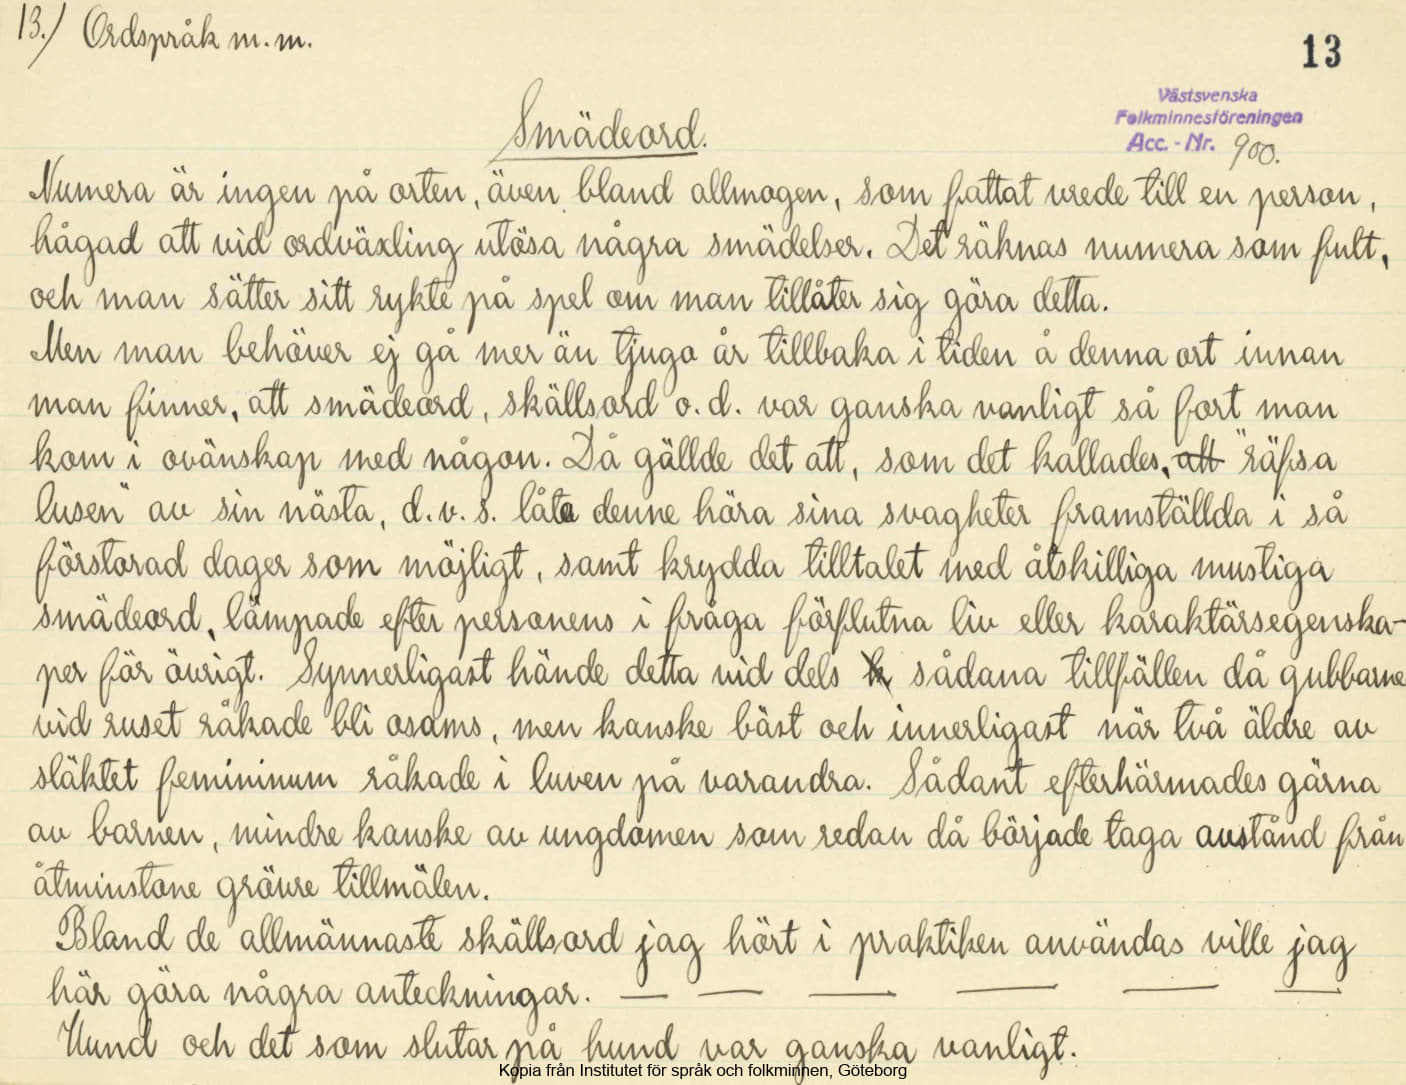 13.) Ordspråk m.m.
13
Västsvenska
Folkminnesföreningen
Acc. - Nr. 900.
Smädeord.
Numera är ingen på orten, även bland allmogen, som fattat vrede till en person,
hågad att vid ordväxling utösa några smädelser. Det räknas numera som fult,
och man sätter sitt rykte på spel om man tillåter sig göra detta.
Men man behöver ej gå mer än tjugo år tillbaka i tiden å denna ort innan
man finner, att smädeord, skällsord o.d. var ganska vanligt så fort man
kom i ovänskap med någon. Då gällde det att, som det kallades, att "räfsa
lusen" av sin nästa, d.v.s. låta denne höra sina svagheter framställda i så
förstorad dager som möjligt, samt krydda tilltalet med åtskilliga mustiga
smädeord, lämpade efter personens i fråga förflutna liv eller karaktärsegenska-
per för övrigt. Synnerligast hände detta vid dels k sådana tillfällen då gubbarne
vid ruset råkade bli osams, men kanske bäst och innerligast när två äldre av
släktet femininum råkade i luven på varandra. Sådant efterhärmades gärna
av barnen, mindre kanske av ungdomen som redan då började taga avstånd från
åtminstone grövre tillmälen.
Bland de allmännaste skällsord jag hört i praktiken användas ville jag
här göra några anteckningar. — — — — — —
Hund och det som slutar på hund var ganska vanligt.
Kopia från Institutet för språk och folkminnen, Göteborg